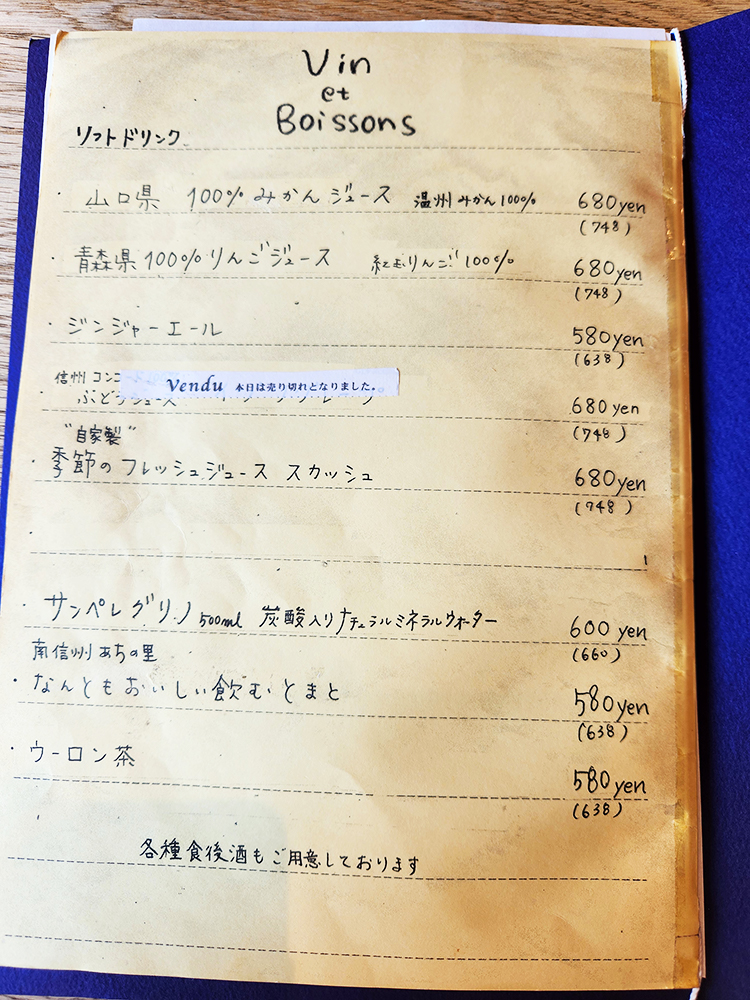 Vin
et
Boissons
ソフトドリンク
・山口県 100% みかんジュース 温州みかん100% 680yen
(748)
・青森県100%りんごジュース 紅玉りんご100% 680yen
(748)
・ジンジャーエール 580yen
(638)
信州 コンコ
Vendu 本日は売り切れとなりました。
ぶどうジュース 680yen
(748)
"自家製"
・季節のフレッシュジュース スカッシュ 680yen
(748)
・サンペレグリノ 500ml 炭酸入りナチュラルミネラルウォーター 600 yen
(660)
南信州 あちの里
・なんともおいしい飲むとまと 580yen
(638)
・ウーロン茶 580yen
(638)
各種食後酒もご用意しております